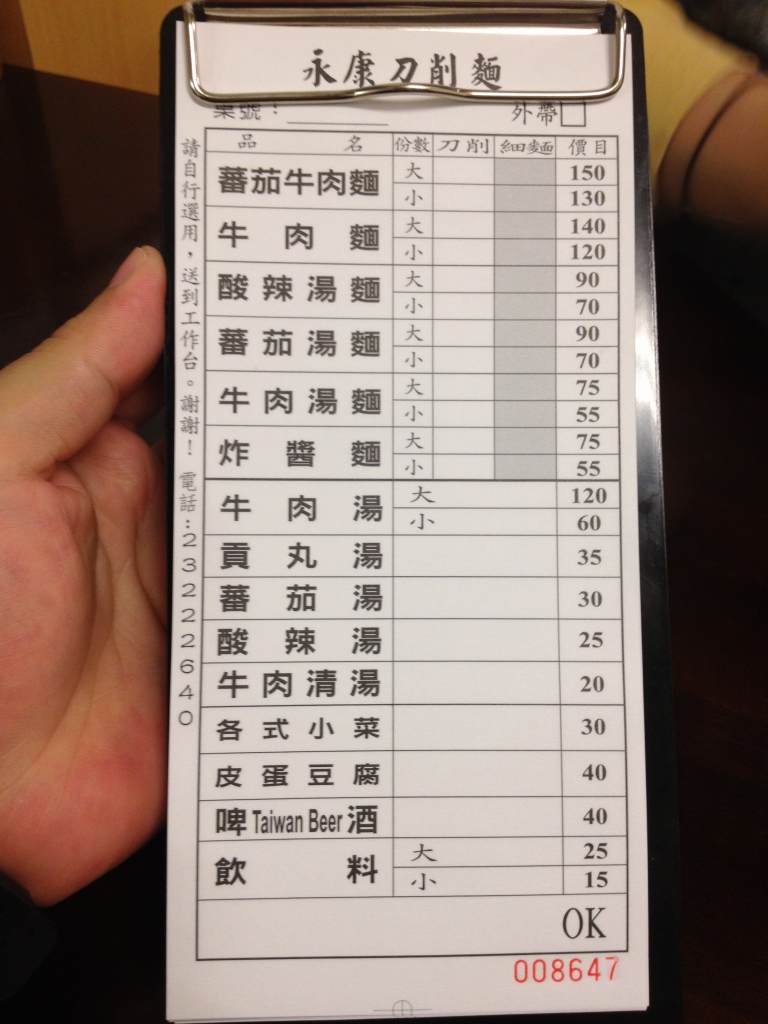 永康刀削麵
桌號：
外帶
品名 份數 刀削 細麵 價目
蕃茄牛肉麵 大 150
小 130
牛肉麵 大 140
小 120
酸辣湯麵 大 90
小 70
蕃茄湯麵 大 90
小 70
牛肉湯麵 大 75
小 55
炸醬麵 大 75
小 55
牛肉湯 大 120
小 60
貢丸湯 35
蕃茄湯 30
酸辣湯 25
牛肉清湯 20
各式小菜 30
皮蛋豆腐 40
啤Taiwan Beer酒 40
飲料 大 25
小 15
OK
008647
請自行選用，送到工作台。謝謝！電話：23222640